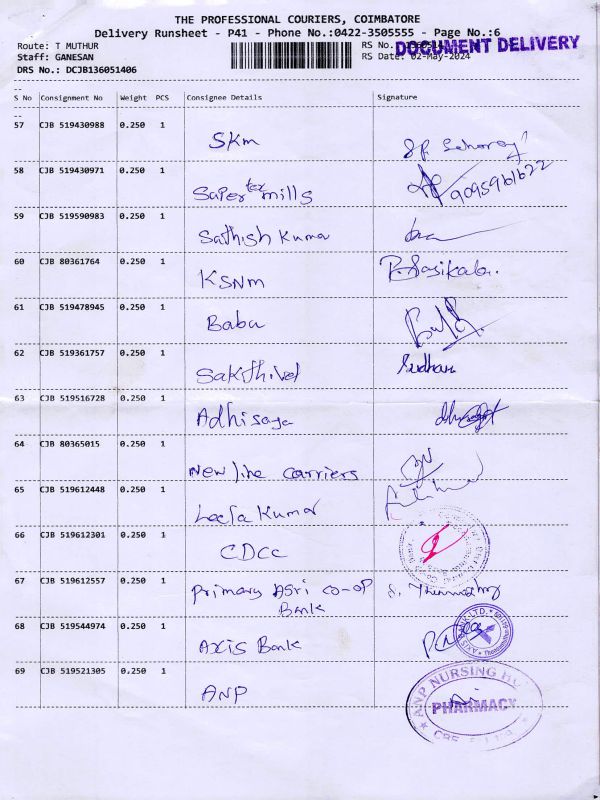 THE PROFESSIONAL COURIERS, COIMBATORE
Delivery Runsheet - P41 - Phone No.:0422-3505555 - Page No.:6
Route: T MUTHUR
RS No.
DOCUMENT DELIVERY
Staff: GANESAN
RS Date: 02-May-2024
DRS No.: DCJB136051406
--
S No Consignment No Weight PCS Consignee Details Signature
--
57 CJB 519430988 0.250 1 SKm
58 CJB 519430971 0.250 1 Super tex mills 9095961622
59 CJB 519590983 0.250 1 Sathish Kumar
60 CJB 80361764 0.250 1 KSNM P. Sasikala.
61 CJB 519478945 0.250 1 Baba
62 CJB 519361757 0.250 1 Sakthivel Sudham
63 CJB 519516728 0.250 1 Adhisaya
64 CJB 80365015 0.250 1 New line carriers
65 CJB 519612448 0.250 1 Leela Kumar
66 CJB 519612301 0.250 1 CDCC
67 CJB 519612557 0.250 1 Primary Agri co-op
Bank
68 CJB 519544974 0.250 1 Axis Bank
69 CJB 519521305 0.250 1 ANP
ANP NURSING
PHARMACY